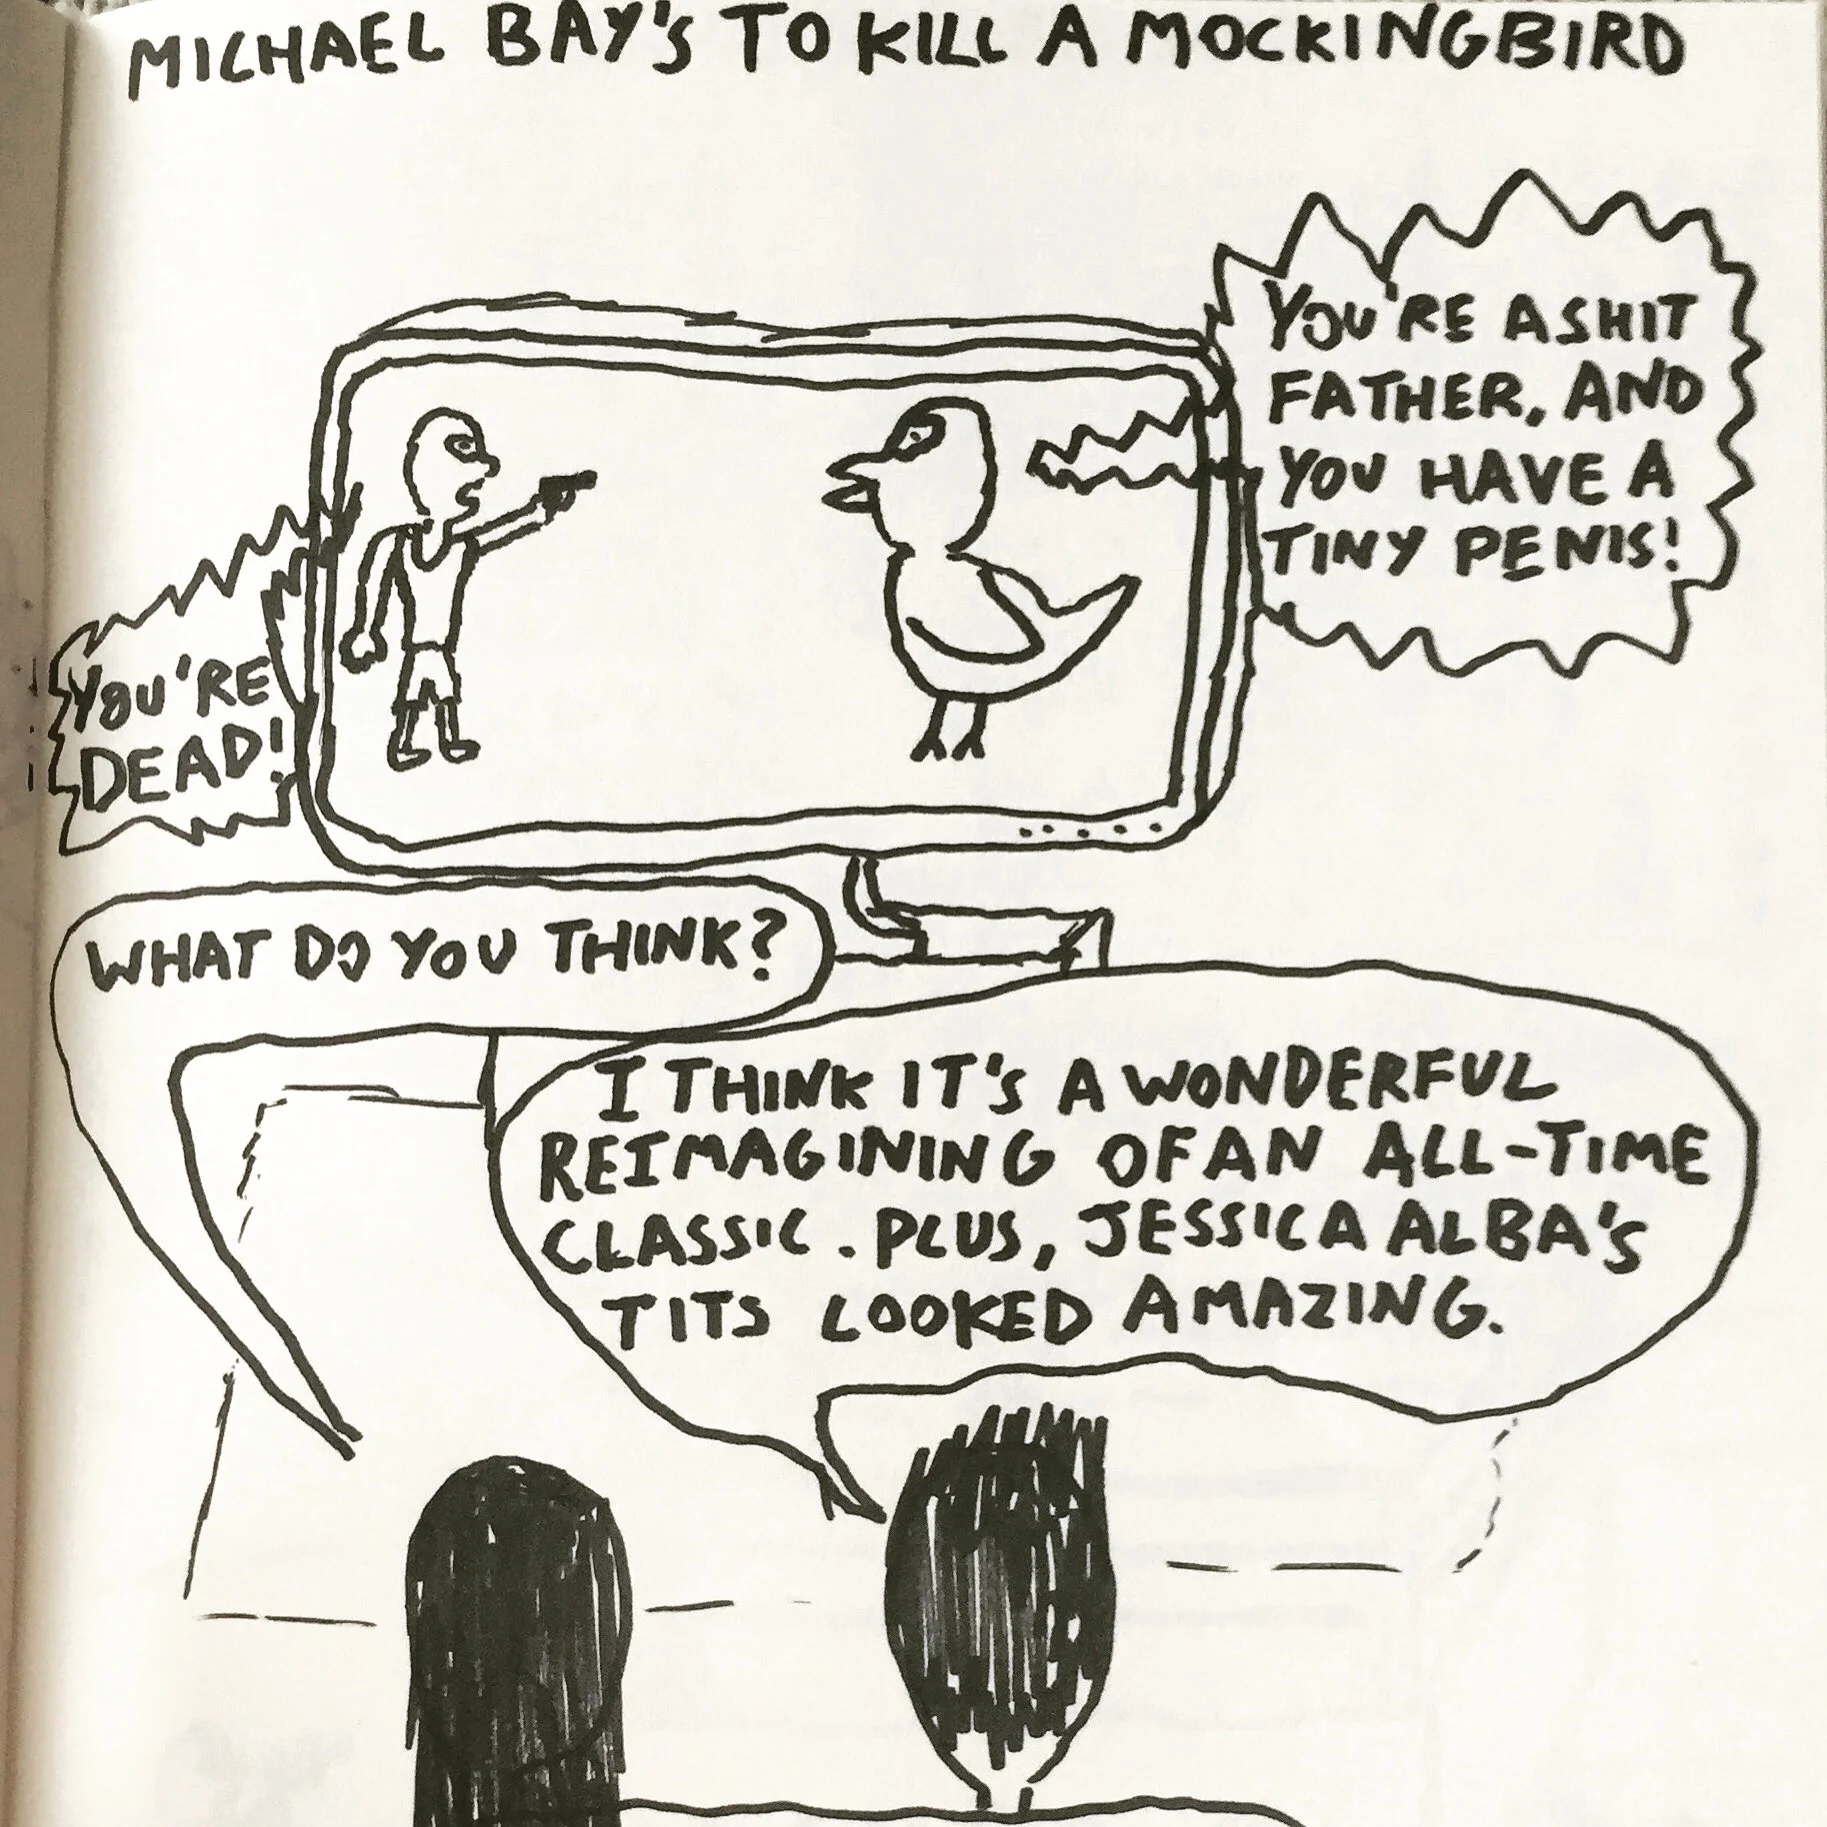 MICHAEL BAY'S TO KILL A MOCKINGBIRD
YOU'RE A SHIT
FATHER, AND
YOU HAVE A
TINY PENIS!
YOU'RE
DEAD!
WHAT DO YOU THINK?
I THINK IT'S A WONDERFUL
REIMAGINING OF AN ALL-TIME
CLASSIC. PLUS, JESSICA ALBA'S
TITS LOOKED AMAZING.